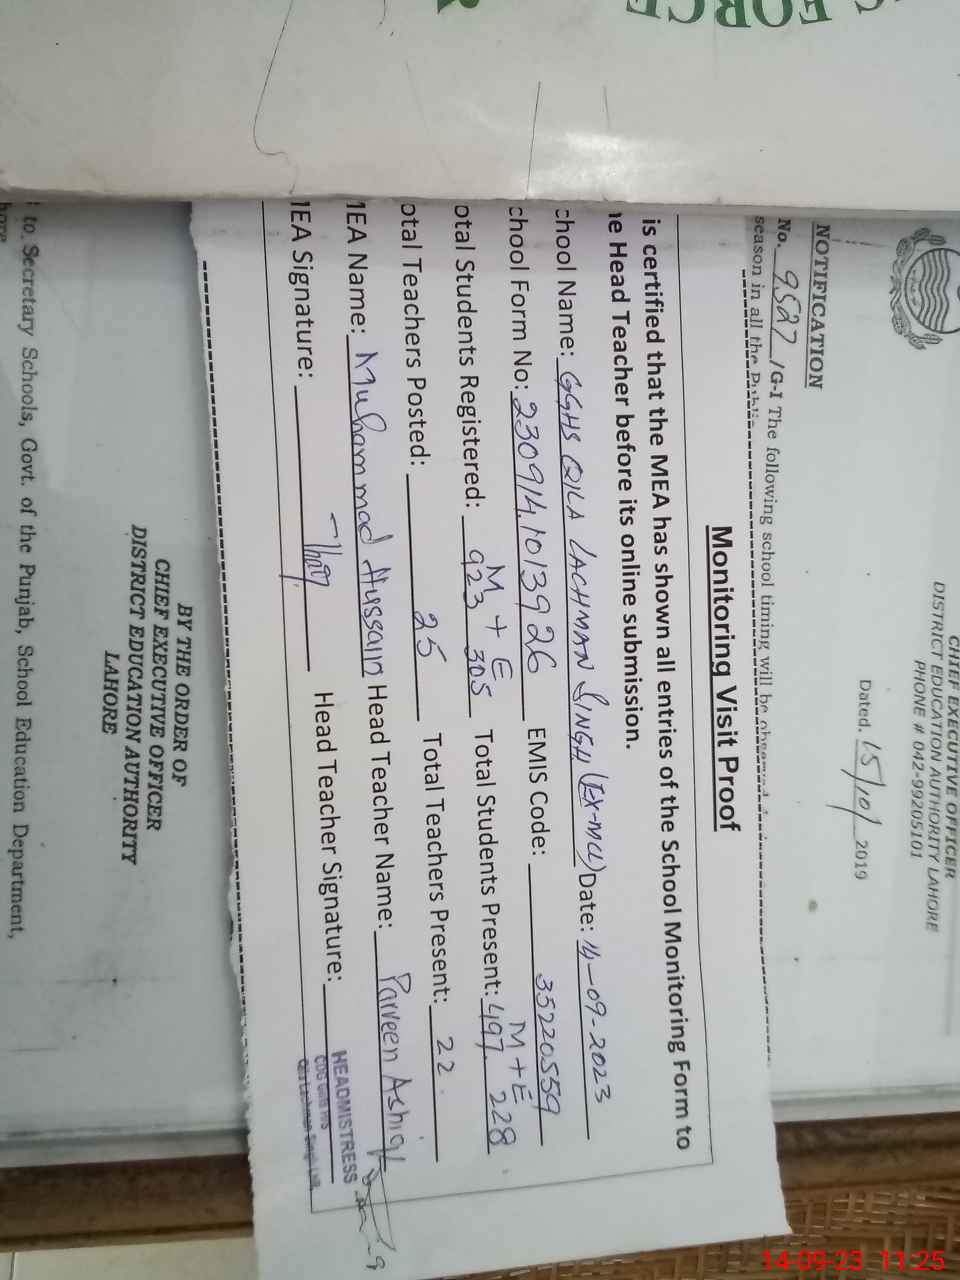 FORCE
CHIEF EXECUTIVE OFFICER
DISTRICT EDUCATION AUTHORITY LAHORE
PHONE # 042-99205101
Dated. 15/10/ 2019
NOTIFICATION
No. 9527 /G-I The following school timing will be
season in all the
Monitoring Visit Proof
is certified that the MEA has shown all entries of the School Monitoring Form to
ne Head Teacher before its online submission.
chool Name: GGHS QILA LACHMAN SINGH (EX-MCL) Date: 14-09-2023
chool Form No: 230914.1013926 EMIS Code: 35220559
M + E M + E
otal Students Registered: 923 305 Total Students Present: 497 228
otal Teachers Posted: 25 Total Teachers Present: 22
MEA Name: Muhammad Hussain Head Teacher Name: Parveen Ashiq
MEA Signature: Head Teacher Signature:
HEADMISTRESS
BY THE ORDER OF
CHIEF EXECUTIVE OFFICER
DISTRICT EDUCATION AUTHORITY
LAHORE
to Secretary Schools, Govt. of the Punjab, School Education Department,
14-09-23 11:25